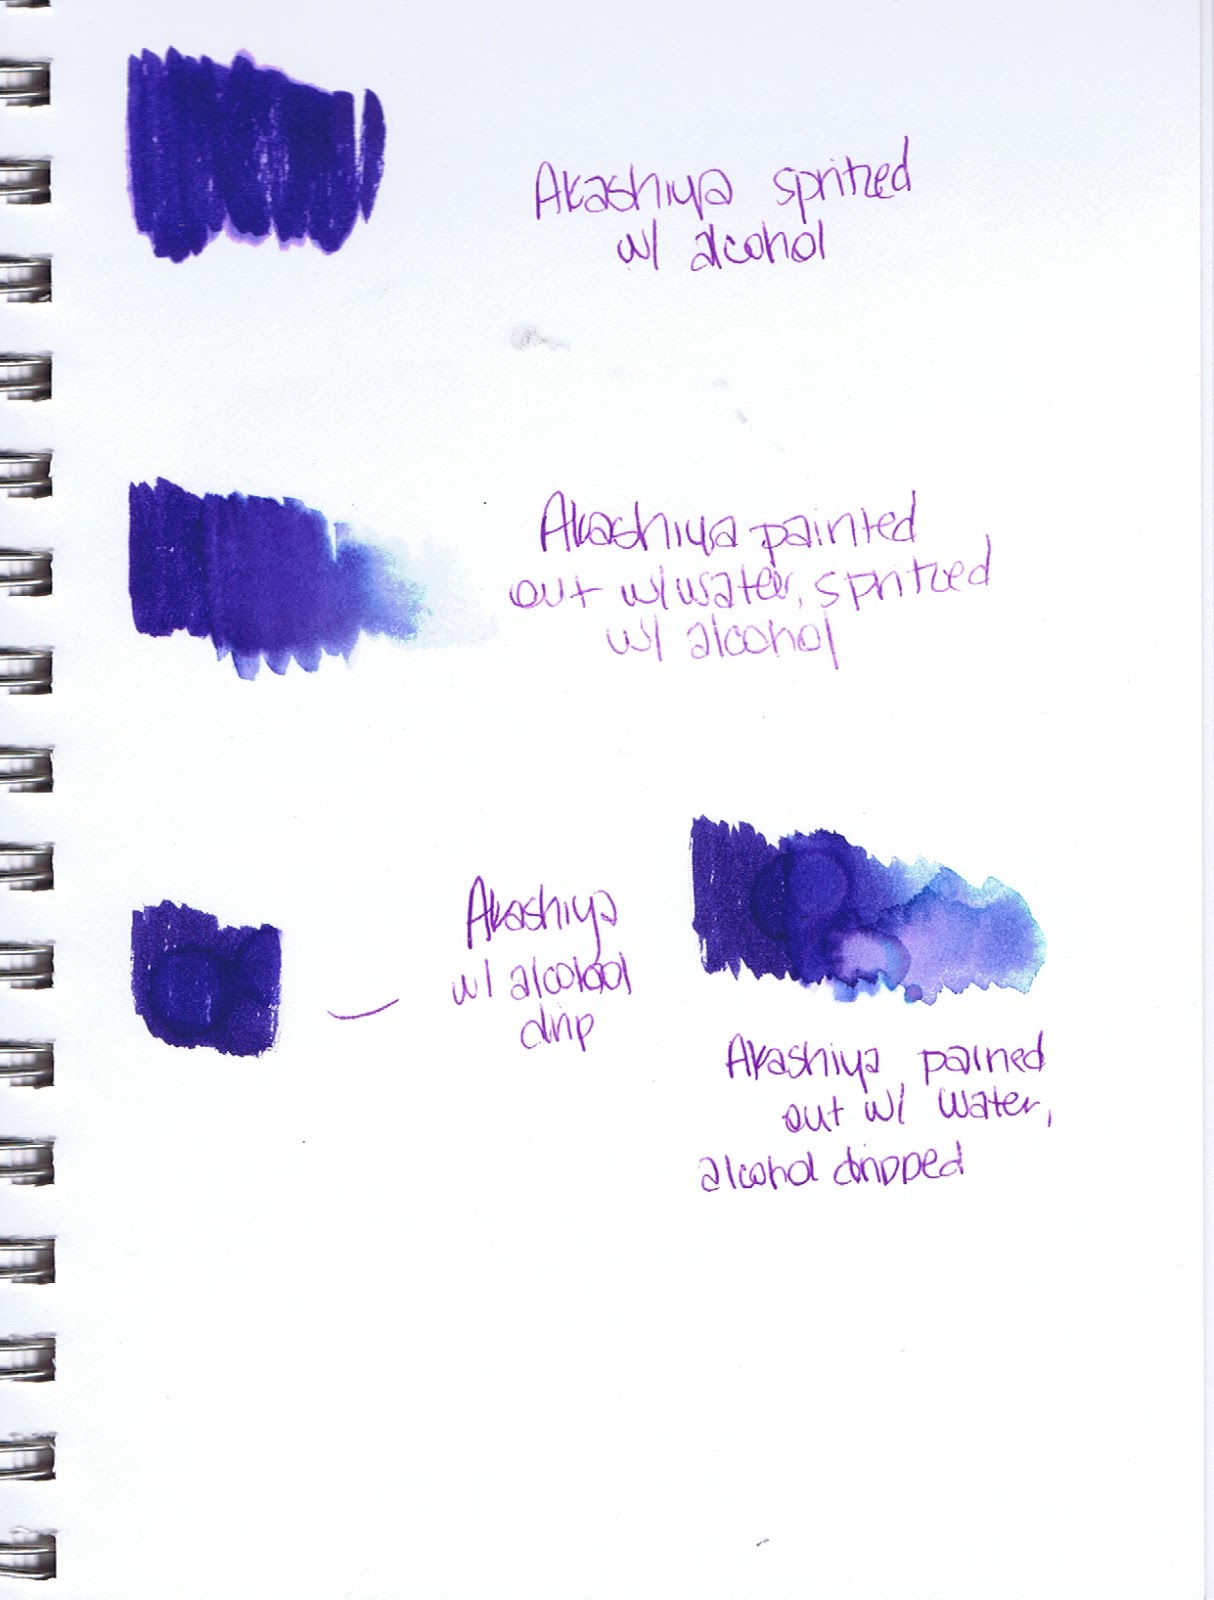 Akashiya spritzed
w/ alcohol
Akashiya painted
out w/ water, spritzed
w/ alcohol
Akashiya
w/ alcolool
drip
Akashiya pained
out w/ water,
alcohol dripped